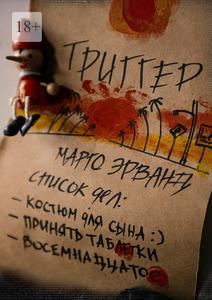 18+
ТРИГГЕР
МАРГО ЭРВАНД
СПИСОК ДЕЛ:
– КОСТЮМ ДЛЯ СЫНА :)
– ПРИНЯТЬ ТАБЛЕТКИ
– ВОСЕМНАДЦАТОЕ